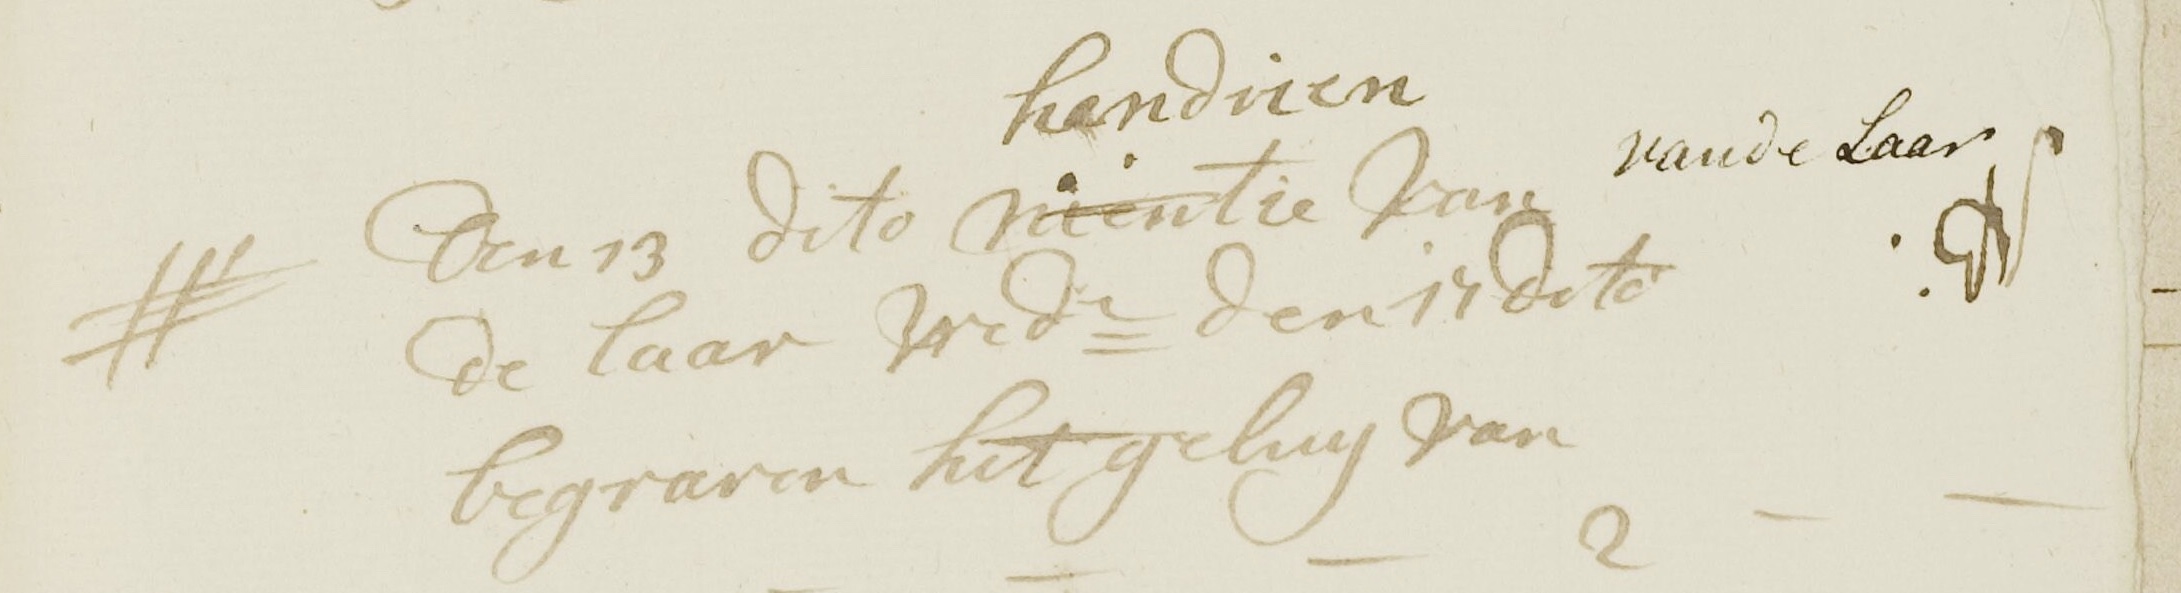 handrien
vande Laar
Den 13 dito nientie van
de laar wedr den 17 dito
begraven het geluy van
2 — —